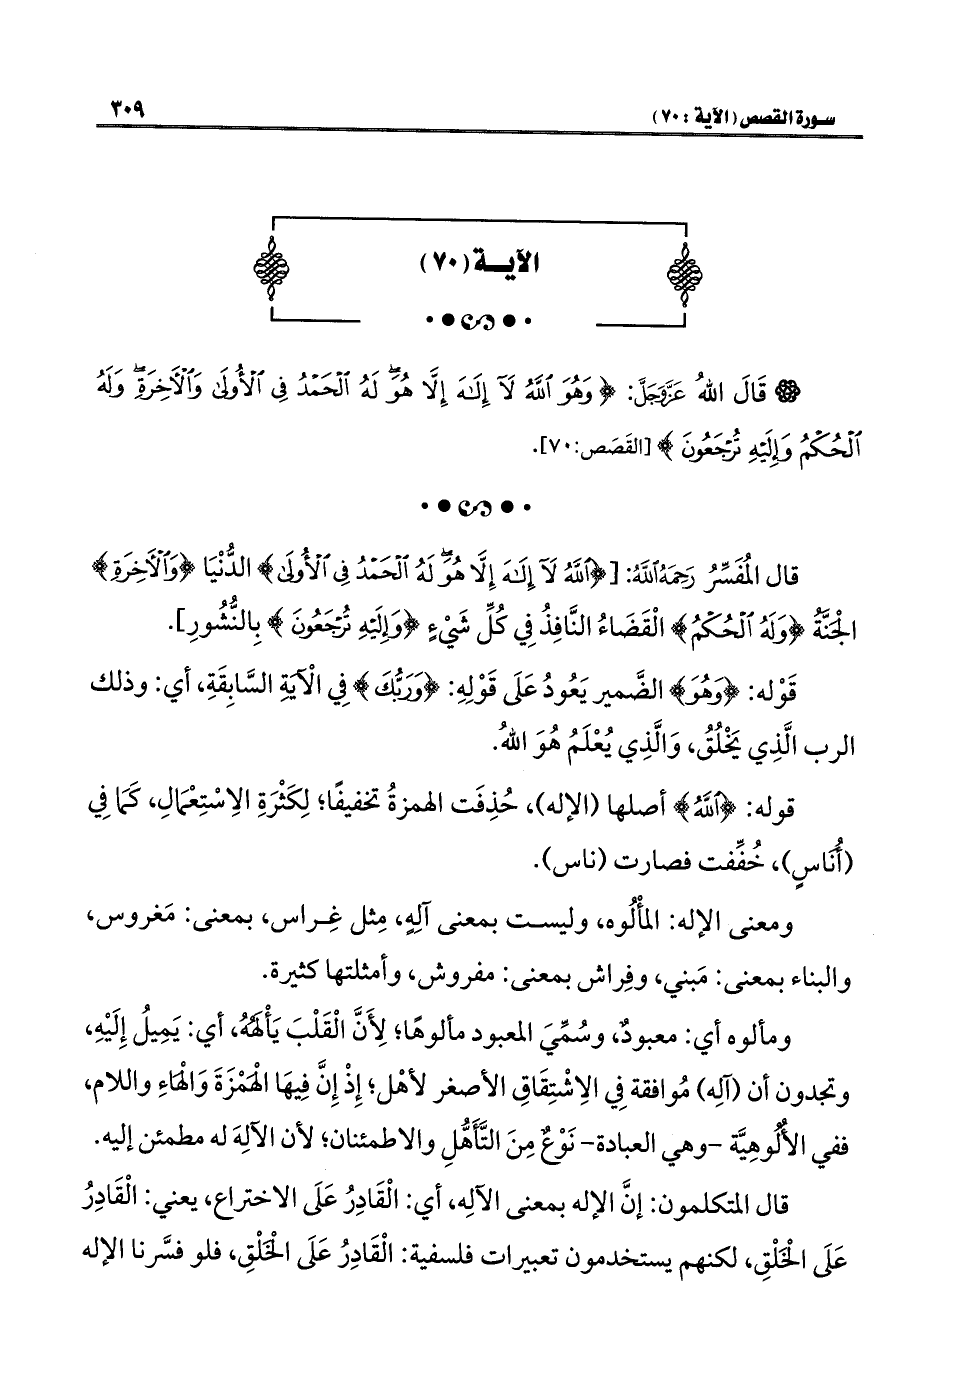 سورة القصص (الآية : ٧٠)
٣٠٩
الآيــة (٧٠)
قَالَ اللهُ عَزَّوَجَلَّ: ﴿وَهُوَ ٱللَّهُ لَآ إِلَـٰهَ إِلَّا هُوَۖ لَهُ ٱلْحَمْدُ فِى ٱلْأُولَىٰ وَٱلْأَخِرَةِۖ وَلَهُ
ٱلْحُكْمُ وَإِلَيْهِ تُرْجَعُونَ﴾ [القَصَص:٧٠].
قال المُفَسِّرُ رَحِمَهُ اللَّهُ: [﴿ٱللَّهُ لَآ إِلَـٰهَ إِلَّا هُوَۖ لَهُ ٱلْحَمْدُ فِى ٱلْأُولَىٰ﴾ الدُّنْيَا ﴿وَٱلْأَخِرَةِ﴾
الجَنَّةُ ﴿وَلَهُ ٱلْحُكْمُ﴾ الْقَضَاءُ النَّافِذُ فِي كُلِّ شَيْءٍ ﴿وَإِلَيْهِ تُرْجَعُونَ﴾ بِالنُّشُورِ].
قَوْله: ﴿وَهُوَ﴾ الضَّمير يَعُودُ عَلَى قَوْلِهِ: ﴿وَرَبُّكَ﴾ فِي الْآيَةِ السَّابِقَةِ، أي: وذلك
الرب الَّذِي يَخْلُقُ، وَالَّذِي يُعْلَمُ هُوَ اللهُ.
قوله: ﴿ٱللَّهُ﴾ أصلها (الإله)، حُذِفَت الهمزةُ تخفيفًا؛ لِكَثْرَةِ الِاسْتِعْمَالِ، كَمَا فِي
(أُنَاسٍ)، خُفِّفت فصارت (ناس).
ومعنى الإله: المَأْلُوه، وليست بمعنى آلِهٍ، مِثل غِراس، بمعنى: مَغروس،
والبناء بمعنى: مَبني، وفِراش بمعنى: مفروش، وأمثلتها كثيرة.
ومألوه أي: معبودٌ، وسُمِّيَ المعبود مألوهًا؛ لِأَنَّ الْقَلْبَ يَأْلَهُهُ، أي: يَمِيلُ إِلَيْهِ،
وتجدون أن (آلِه) مُوافقة فِي الِاشْتِقَاقِ الأصغر لأهْل؛ إِذْ إِنَّ فِيهَا الْهَمْزَةَ وَالْهَاءِ واللام،
ففي الأُلُوهِيَّة -وهي العبادة- نَوْعٌ مِنَ التَّأَهُّلِ والاطمئنان؛ لأن الآلِهَ له مطمئن إليه.
قال المتكلمون: إنَّ الإله بمعنى الآلِه، أي: الْقَادِرُ عَلَى الاختراع، يعني: الْقَادِرُ
عَلَى الْخَلْقِ، لكنهم يستخدمون تعبيرات فلسفية: الْقَادِرُ عَلَى الْخَلْقِ، فلو فسَّرنا الإله